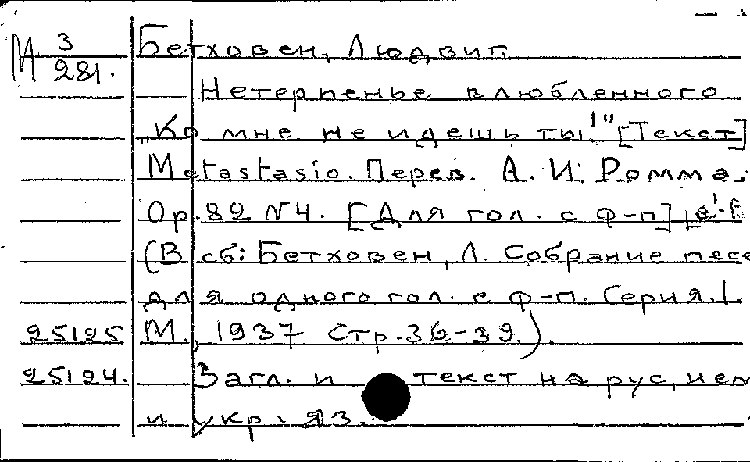 М 3/281. Бетховен, Людвиг.
Нетерпенье влюбленного
"Ко мне не идешь ты!" [Текст]
Metastasio. Перев. А. И. Ромма.
Op. 82 N4. [Для гол. с ф-п]
(В сб: Бетховен, Л. Собрание песе
для одного гол. с ф-п. Серия. I.
25125 М., 1937 Стр. 36-39).
25124. Загл. и текст на рус, нем
и укр. яз.